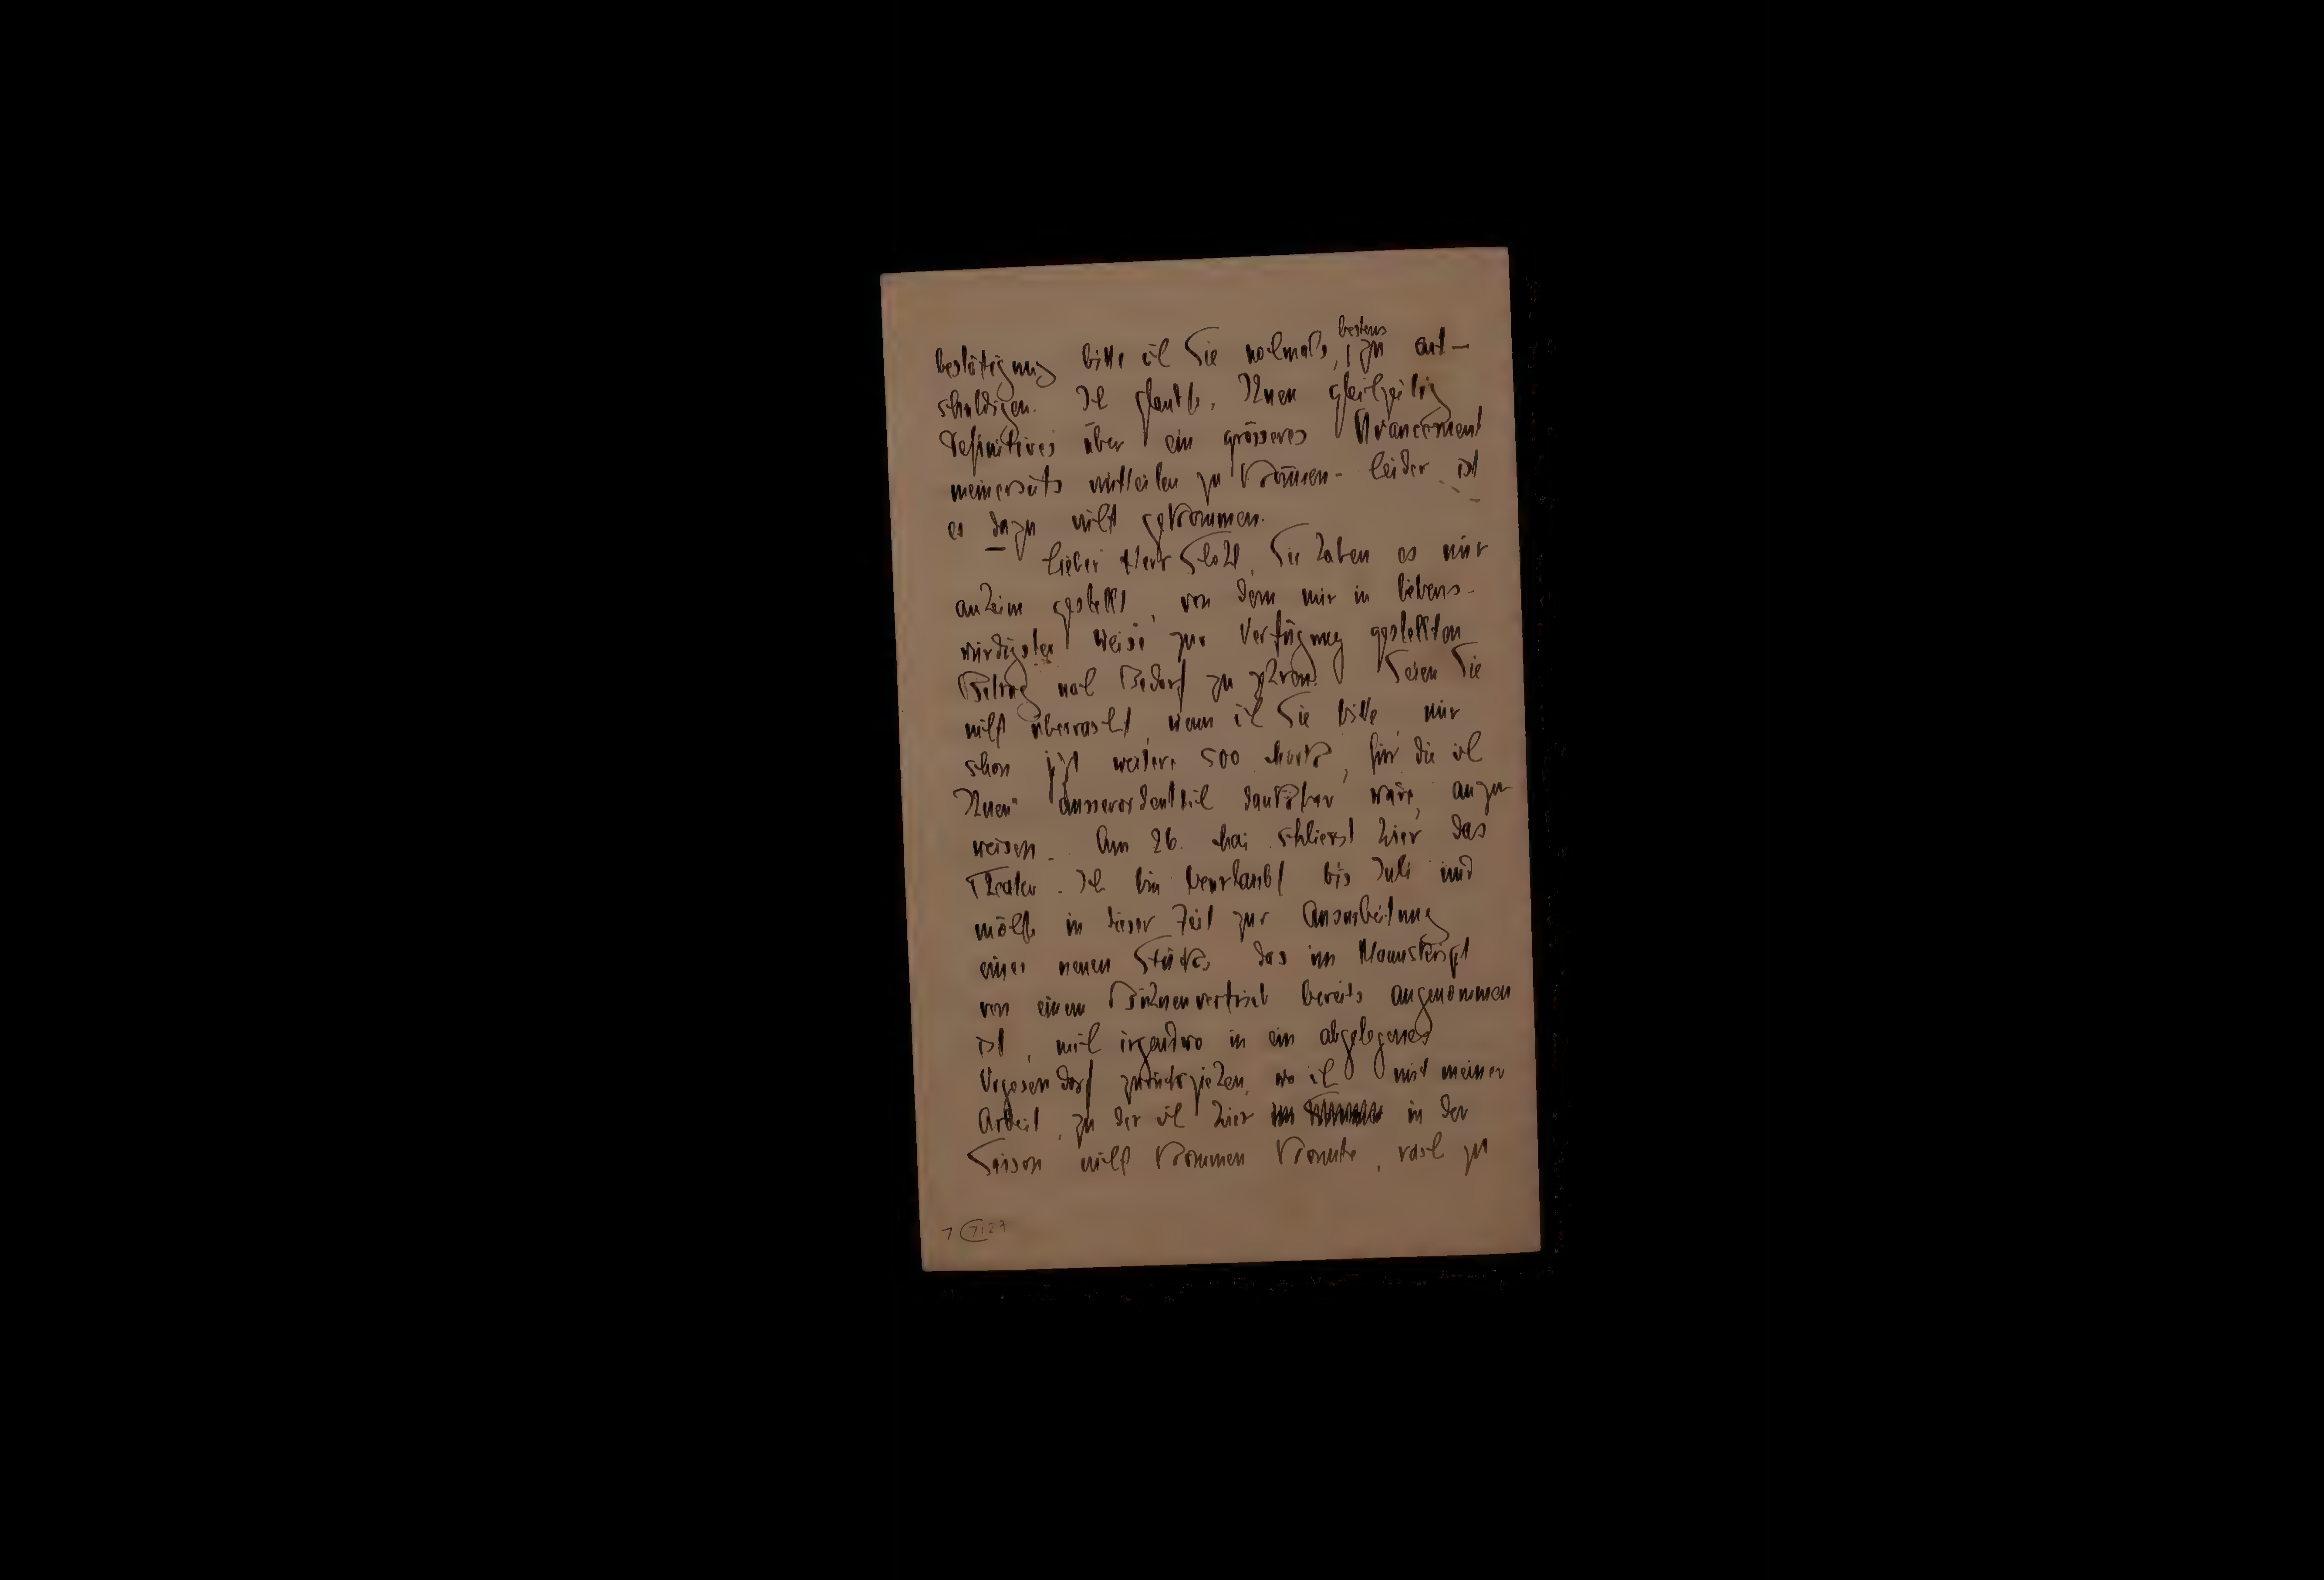 bestätigung bitte ich Sie nochmals, bestens zu ent-
schuldigen. Ich glaubte, Ihnen gleichzeitig
Definitives über ein grösseres Avancement
meinerseits mitteilen zu können - leider ist
es dazu nicht gekommen.
Lieber Herr Stahl, Sie haben es mir
anheim gestellt, von dem mir in liebens-
würdigster Weise zur Verfügung gestellten
Betrag nach Bedarf zu zehren. Seien Sie
nicht überrascht, wenn ich Sie bitte, mir
schon jetzt weitere 500 Mark, für die ich
Ihnen ausserordentlich dankbar wäre, anzu-
weisen. Am 26. Mai schliesst hier das
Theater. Ich bin beurlaubt bis Juli und
möchte in dieser Zeit zur Ausarbeitung
eines neuen Stücks, das im Manuskript
von einem Bühnenvertrieb bereits angenommen
ist, mich irgendwo in ein abgelegenes
Vogesendorf zurückziehen, wo ich mit meiner
Arbeit, zu der ich hier in der
Saison nicht kommen konnte, rasch zu
7 7.27